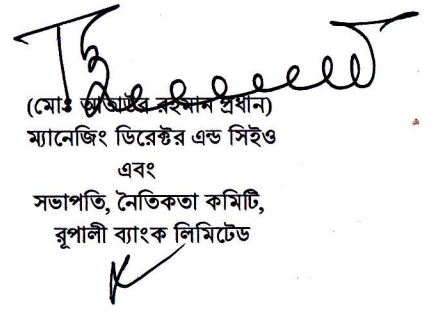 (মোঃ আতাউর রহমান প্রধান)
ম্যানেজিং ডিরেক্টর এন্ড সিইও
এবং
সভাপতি, নৈতিকতা কমিটি,
রূপালী ব্যাংক লিমিটেড